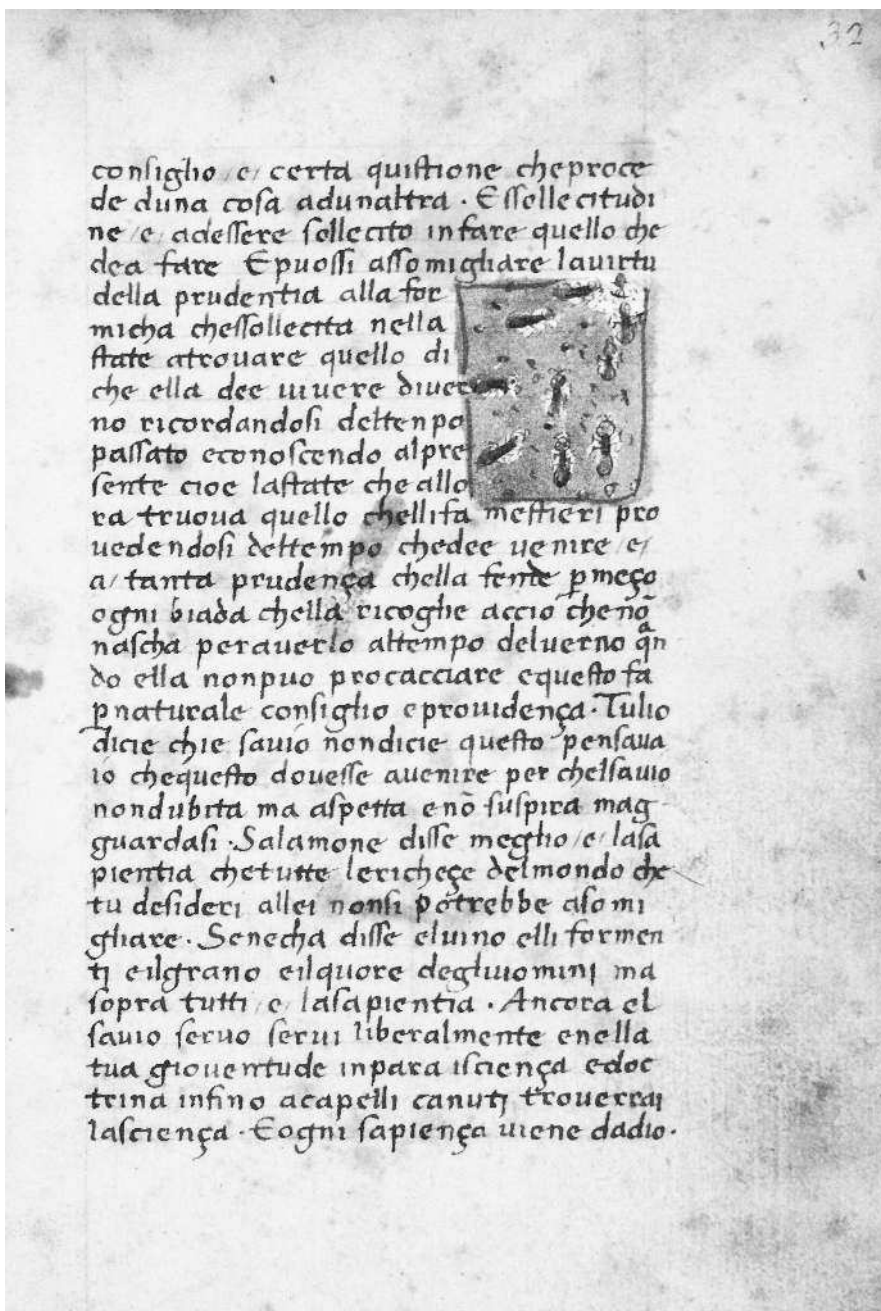 32
consiglio /e/ certa quistione cheproce
de duna cosa adunaltra · Essollecitudi
ne /e/ adessere sollecito infare quello che
dea fare Epuossi assomigliare lauirtu
della prudentia alla for
micha chessollecita nella
state atrouare quello di
che ella dee uiuere diuer
no ricordandosi deltenpo
passato econoscendo alpre
sente cioe lastate che allo
ra truoua quello chellifa mestieri pro
uedendosi deltempo chedee uenire /e/
a/ tanta prudença chella fende ꝑmeço
ogni biada chella ricoglie accio chenō
nascha perauerlo altempo deluerno qͣn
do ella nonpuo procacciare equesto fa
ꝑnaturale consiglio eprouidença · Tulio
dicie chie sauio nondicie questo pensaua
io chequesto douesse auenire per chelsauio
nondubita ma aspetta enō suspira mag
guardasi · Salamone disse meglio /e/ lasa
pientia chetutte lericheçe delmondo che
tu desideri allei nonsi potrebbe asomi
gliare · Senecha disse eluino elli formen
tj eilgrano eilquore degliuominj ma
sopra tutti /e/ lasapientia · Ancora el
sauio seruo serui liberalmente enella
tua giouentude inpara isciença edoc
trina infino acapelli canutj trouerraj
lasciença · Eogni sapiença uiene dadio ·